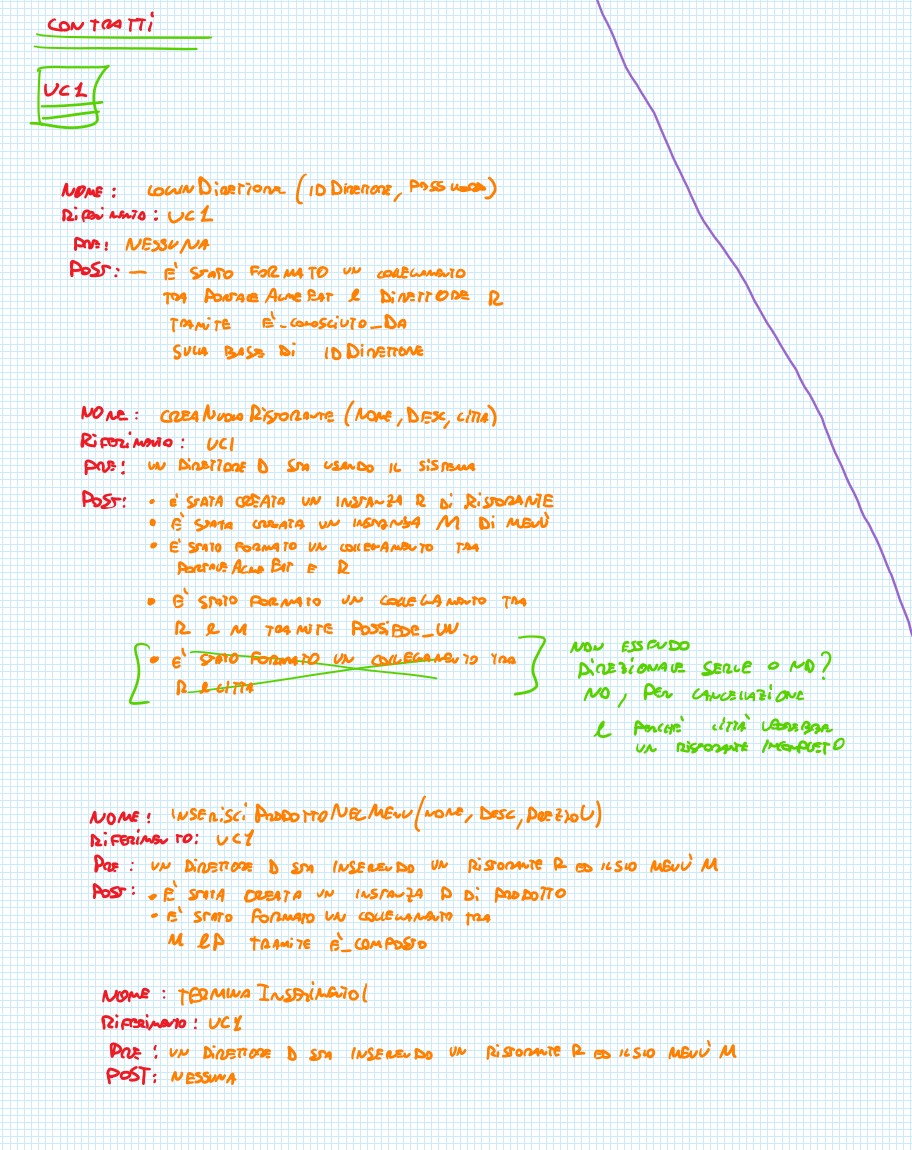 CONTRATTI
UC1
NOME: LOGIN DIRETTORE (ID DIRETTORE, PASSWORD)
RIFERIMENTO: UC1
PRE: NESSUNA
POST: — È STATO FORMATO UN COLLEGAMENTO
TRA PORTALE ACME EAT E DIRETTORE R
TRAMITE È_CONOSCIUTO_DA
SULLA BASE DI ID DIRETTORE
NOME: CREA NUOVO RISTORANTE (NOME, DESC, CITTÀ)
RIFERIMENTO: UC1
PRE: UN DIRETTORE D STA USANDO IL SISTEMA
POST: • È STATA CREATO UN INSTANZA R DI RISTORANTE
• È STATA CREATA UN INSTANZA M DI MENÙ
• È STATO FORMATO UN COLLEGAMENTO TRA
PORTALE ACME EAT E R
• È STATO FORMATO UN COLLEGAMENTO TRA
R E M TRAMITE POSSIEDE_UN
[• È STATO FORMATO UN COLLEGAMENTO TRA
R E CITTÀ]
NON ESSENDO
DIREZIONALE SERVE O NO?
NO, PER CANCELLAZIONE
E PERCHÉ CITTÀ
UN RISTORANTE INCOMPLETO
NOME: INSERISCI PRODOTTO NEL MENU (NOME, DESC, PREZZOU)
RIFERIMENTO: UC1
PRE: UN DIRETTORE D STA INSERENDO UN RISTORANTE R ED IL SIO MENUÙ M
POST: • È STATA CREATA UN INSTANZA P DI PRODOTTO
• È STATO FORMATO UN COLLEGAMENTO TRA
M E P TRAMITE È_COMPOSTO
NOME: TERMINA INSERIMENTO(
RIFERIMENTO: UC1
PRE: UN DIRETTORE D STA INSERENDO UN RISTORANTE R ED IL SIO MENUÙ M
POST: NESSUNA